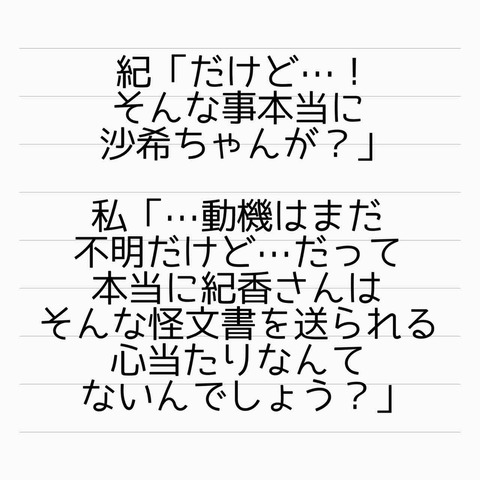 紀「だけど…！
そんな事本当に
沙希ちゃんが？」
私「…動機はまだ
不明だけど…だって
本当に紀香さんは
そんな怪文書を送られる
心当たりなんて
ないんでしょう？」